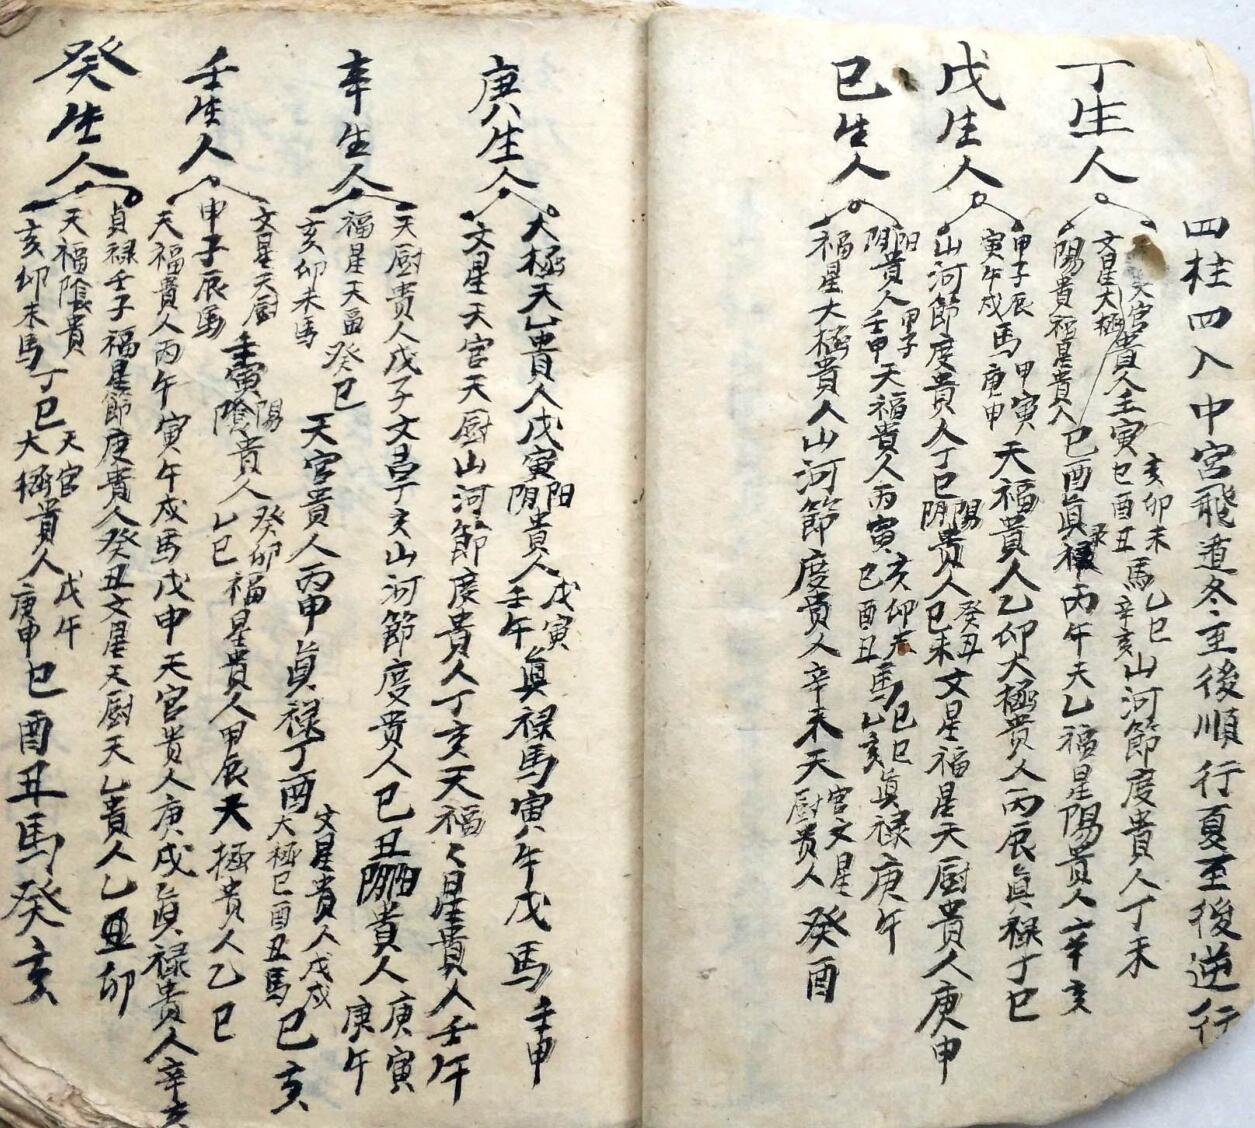 四柱四入中宮飛遁冬至後順行夏至後逆行
丁生人
天官貴人壬寅亥卯未巳酉丑馬乙巳辛亥山河節度貴人丁未
文星大極
陽貴福星貴人己酉眞禄丙午天乙福星陽貴人辛亥
戊生人
甲子辰寅午戌馬甲寅庚申天福貴人乙卯大極貴人丙辰眞禄丁巳
山河節度貴人丁巳陽陰貴人癸丑己未文星福星天厨貴人庚申
已生人
阳阴貴人甲子壬申天福貴人丙寅亥卯未巳酉丑馬己巳乙亥眞禄庚午
福星大極貴人山河節度貴人辛未天官文星厨贵人癸酉
庚生人
大極天乙貴人戊寅阳阴貴人戊寅壬午眞禄馬寅午戌馬壬申
文星天官天厨山河節度貴人丁亥天福々星貴人壬午
辛生人
天厨贵人戊子文昌子亥山河節度贵人己丑阳阴貴人庚寅庚午
福星天畐癸巳天官貴人丙申眞禄丁酉文星貴人戊戌大極巳酉丑馬己亥
亥卯未馬
壬生人
文星天厨壬寅陽陰貴人癸卯乙巳福星貴人甲辰天極贵人乙巳
甲子辰馬
天福貴人丙午寅午戌馬戊申天官貴人庚戌眞禄貴人辛亥
癸生人
貞禄壬子福星節度貴人癸丑文星天厨天乙貴人乙丑卯
天福陰貴丁巳天官大極貴人戊午庚申巳酉丑馬癸亥
亥卯未馬